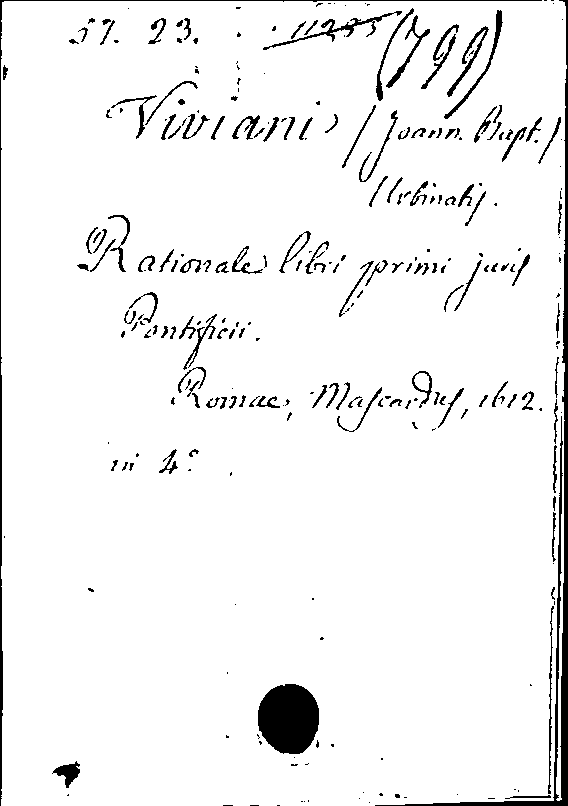 57. 23. 11235 (799)
Viviani (Joann. Bapt.)
Urbinatis.
Rationale libri primi juris
Pontificii.
Romae, Mascardus, 1612.
in 4°.